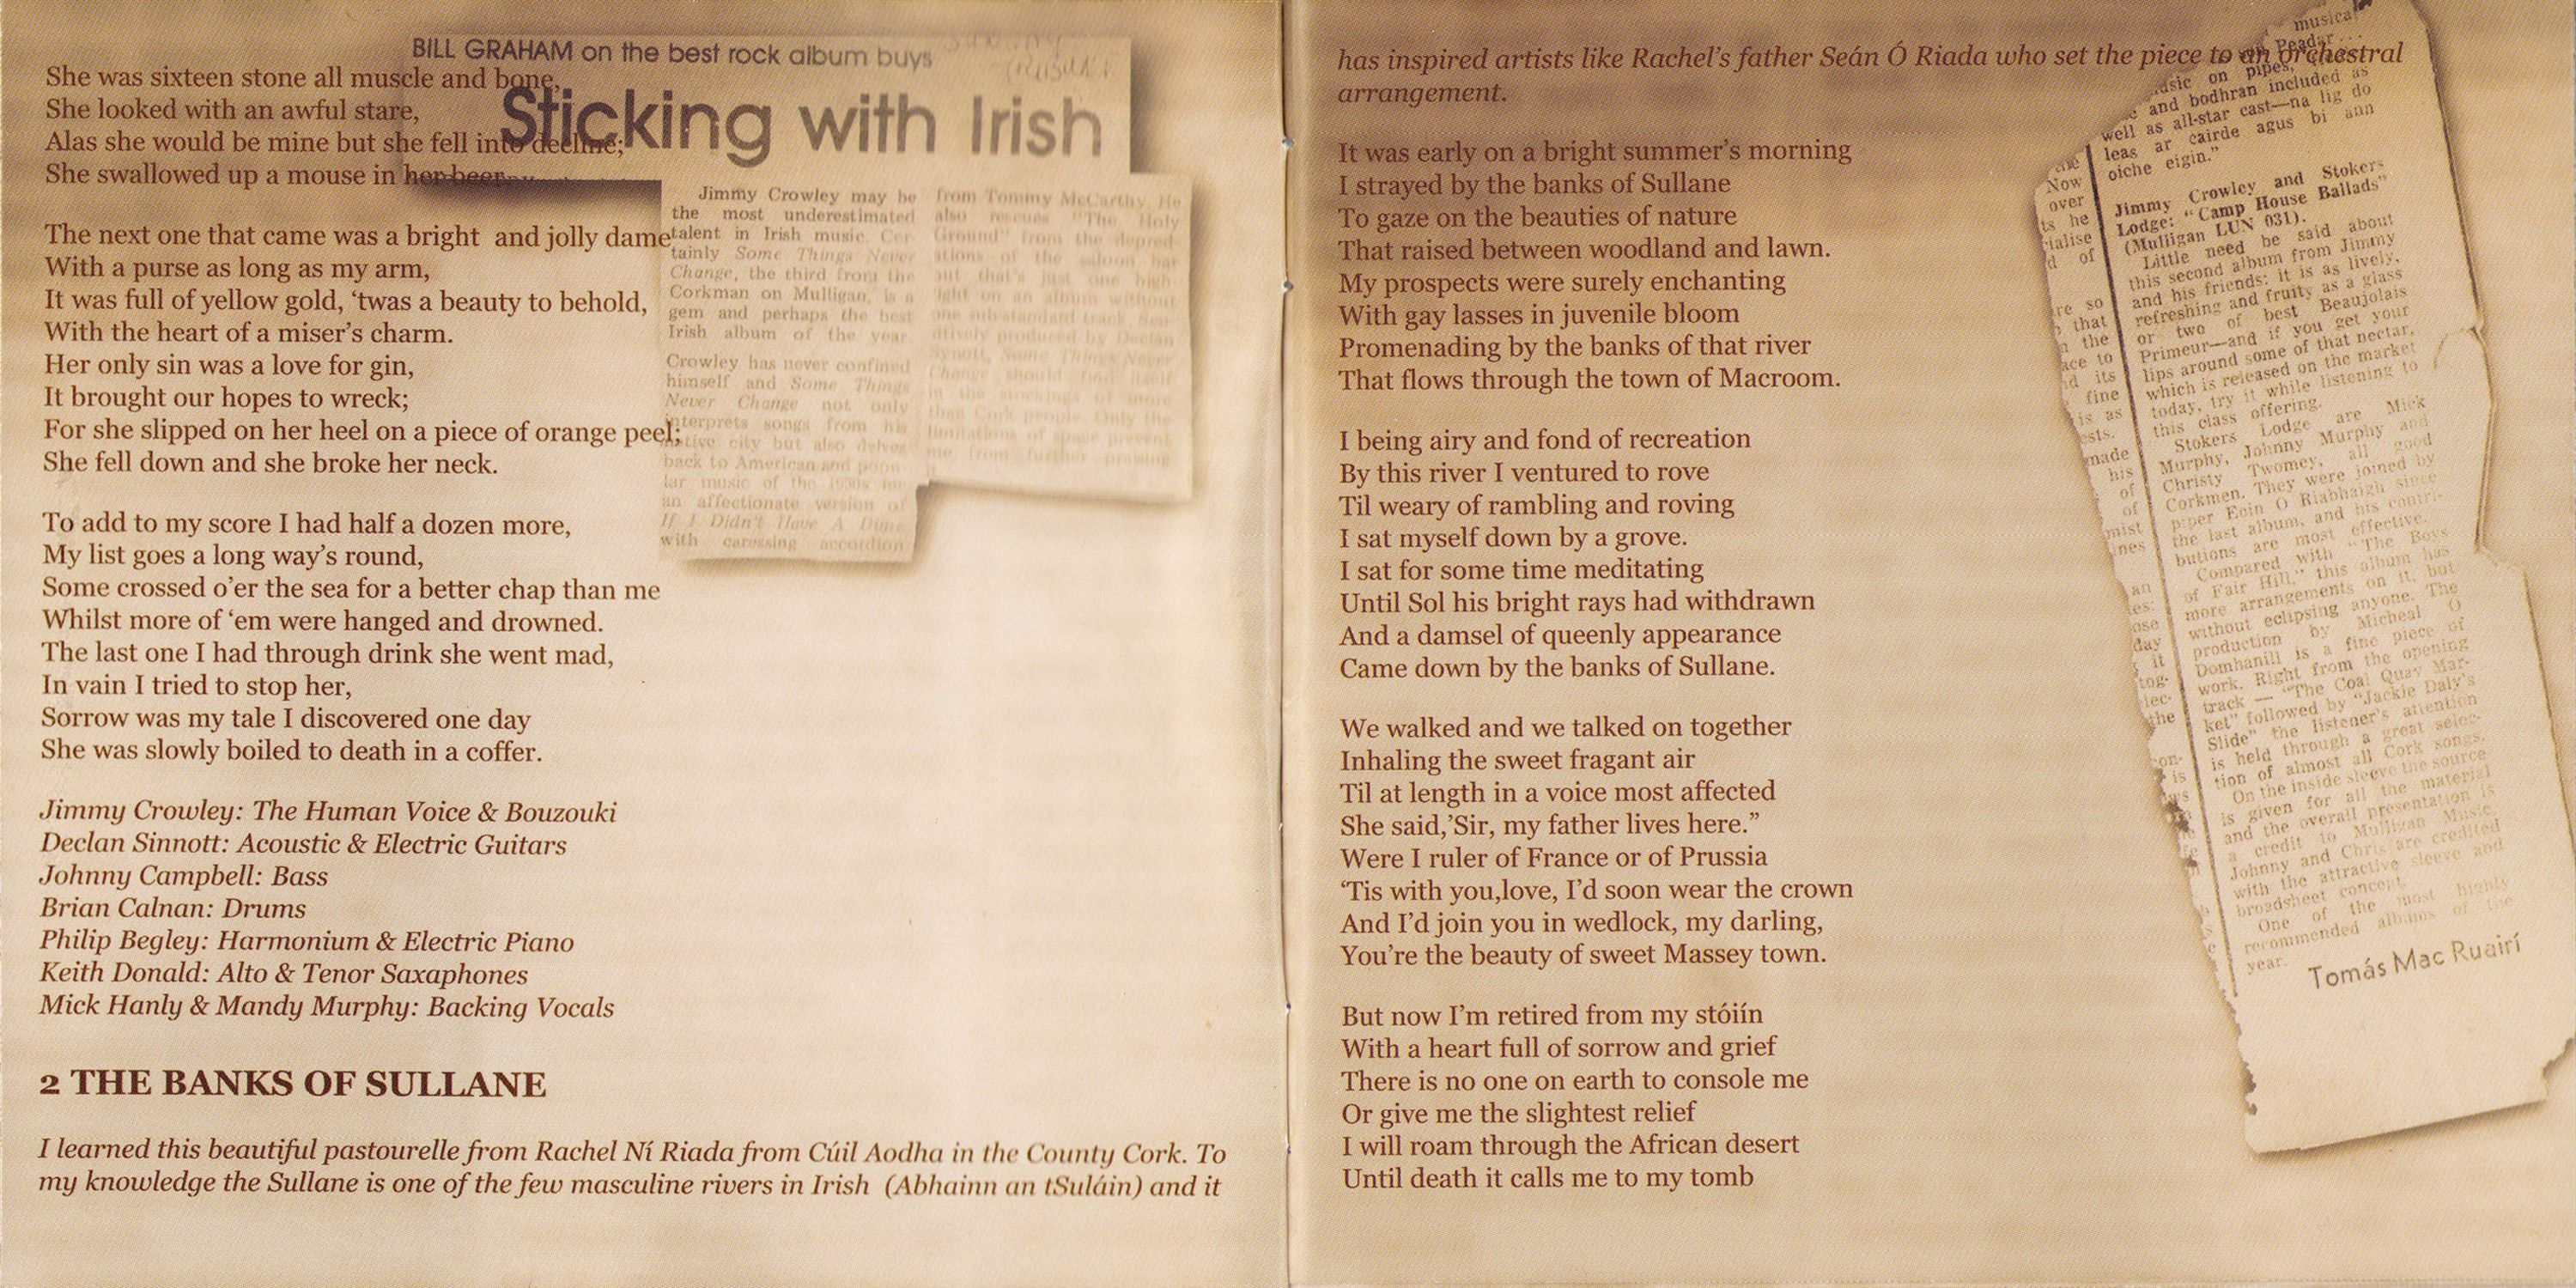 BILL GRAHAM on the best rock album buys
Sticking with Irish
She was sixteen stone all muscle and bone,
She looked with an awful stare,
Alas she would be mine but she fell into decline;
She swallowed up a mouse in her beer.
The next one that came was a bright and jolly dame
With a purse as long as my arm,
It was full of yellow gold, ‘twas a beauty to behold,
With the heart of a miser’s charm.
Her only sin was a love for gin,
It brought our hopes to wreck;
For she slipped on her heel on a piece of orange peel;
She fell down and she broke her neck.
To add to my score I had half a dozen more,
My list goes a long way’s round,
Some crossed o’er the sea for a better chap than me
Whilst more of ‘em were hanged and drowned.
The last one I had through drink she went mad,
In vain I tried to stop her,
Sorrow was my tale I discovered one day
She was slowly boiled to death in a coffer.
Jimmy Crowley: The Human Voice & Bouzouki
Declan Sinnott: Acoustic & Electric Guitars
Johnny Campbell: Bass
Brian Calnan: Drums
Philip Begley: Harmonium & Electric Piano
Keith Donald: Alto & Tenor Saxaphones
Mick Hanly & Mandy Murphy: Backing Vocals
2 THE BANKS OF SULLANE
I learned this beautiful pastourelle from Rachel Ní Riada from Cúil Aodha in the County Cork. To
my knowledge the Sullane is one of the few masculine rivers in Irish (Abhainn an tSuláin) and it
Jimmy Crowley may be
the most underestimated
talent in Irish music. Cer-
tainly Some Things Never
Change, the third from the
Corkman on Mulligan, is a
gem and perhaps the best
Irish album of the year.
Crowley has never confined
himself and Some Things
Never Change not only
interprets songs from his
native city but also delves
back to American and popu-
lar music of the 1930s for
an affectionate version of
If I Didn't Have A Dime
with caressing accordion
from Tommy McCarthy. He
also rescues "The Holy
Ground" from the depred-
ations of the saloon bar
but that's just one high-
light on an album without
one sub-standard track
produced by Declan
Synott, Some Things Never
Change should find itself
in the stockings of more
than Cork people. Only the
limitations of space prevent
me from further praising
has inspired artists like Rachel’s father Seán Ó Riada who set the piece to an orchestral
arrangement.
It was early on a bright summer’s morning
I strayed by the banks of Sullane
To gaze on the beauties of nature
That raised between woodland and lawn.
My prospects were surely enchanting
With gay lasses in juvenile bloom
Promenading by the banks of that river
That flows through the town of Macroom.
I being airy and fond of recreation
By this river I ventured to rove
Til weary of rambling and roving
I sat myself down by a grove.
I sat for some time meditating
Until Sol his bright rays had withdrawn
And a damsel of queenly appearance
Came down by the banks of Sullane.
We walked and we talked on together
Inhaling the sweet fragant air
Til at length in a voice most affected
She said,’Sir, my father lives here.”
Were I ruler of France or of Prussia
‘Tis with you,love, I’d soon wear the crown
And I’d join you in wedlock, my darling,
You’re the beauty of sweet Massey town.
But now I’m retired from my stóiín
With a heart full of sorrow and grief
There is no one on earth to console me
Or give me the slightest relief
I will roam through the African desert
Until death it calls me to my tomb
musical
Peadar
music on pipes,
and bodhran included as
well as all-star cast—na lig do
leas ar cairde agus bi ann
oiche eigin."
Jimmy Crowley and Stokers
Lodge: "Camp House Ballads"
(Mulligan LUN 031).
Little need be said about
this second album from Jimmy
and his friends: it is as lively,
refreshing and fruity as a glass
or two of best Beaujolais
Primeur—and if you get your
lips around some of that nectar,
which is released on the market
today, try it while listening to
this class offering.
Stokers Lodge are Mick
Murphy, Johnny Murphy and
Christy Twomey, all good
Corkmen. They were joined by
piper Eoin O Riabhaigh since
the last album, and his contri-
butions are most effective.
Compared with "The Boys
of Fair Hill," this album has
more arrangements on it, but
without eclipsing anyone. The
production by Micheal O
Domhanill is a fine piece of
work. Right from the opening
track — "The Coal Quay Mar-
ket" followed by "Jackie Daly's
Slide" the listener's attention
is held through a great selec-
tion of almost all Cork songs.
On the inside sleeve the source
is given for all the material
and the overall presentation is
a credit to Mulligan Music.
Johnny and Chris are credited
with the attractive sleeve and
broadsheet concept.
One of the most highly
recommended albums of the
year.
Tomás Mac Ruairí